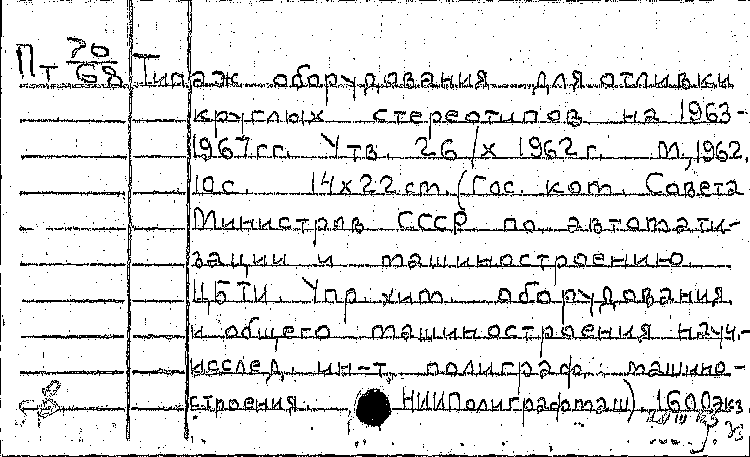 Пт 70/68 Типаж оборудования для отливки
круглых стереотипов на 1963-
1967 гг. Утв. 26/X 1962 г. М., 1962.
10 с. 14x22 cm. (Гос. ком. Совета
Министров СССР по автомати-
зации и машиностроению.
ЦБТИ. Упр. хим. оборудования
и общего машиностроения науч.-
исслед. ин-т полиграф. машино-
строения. НИИПолиграфмаш). 1600 экз